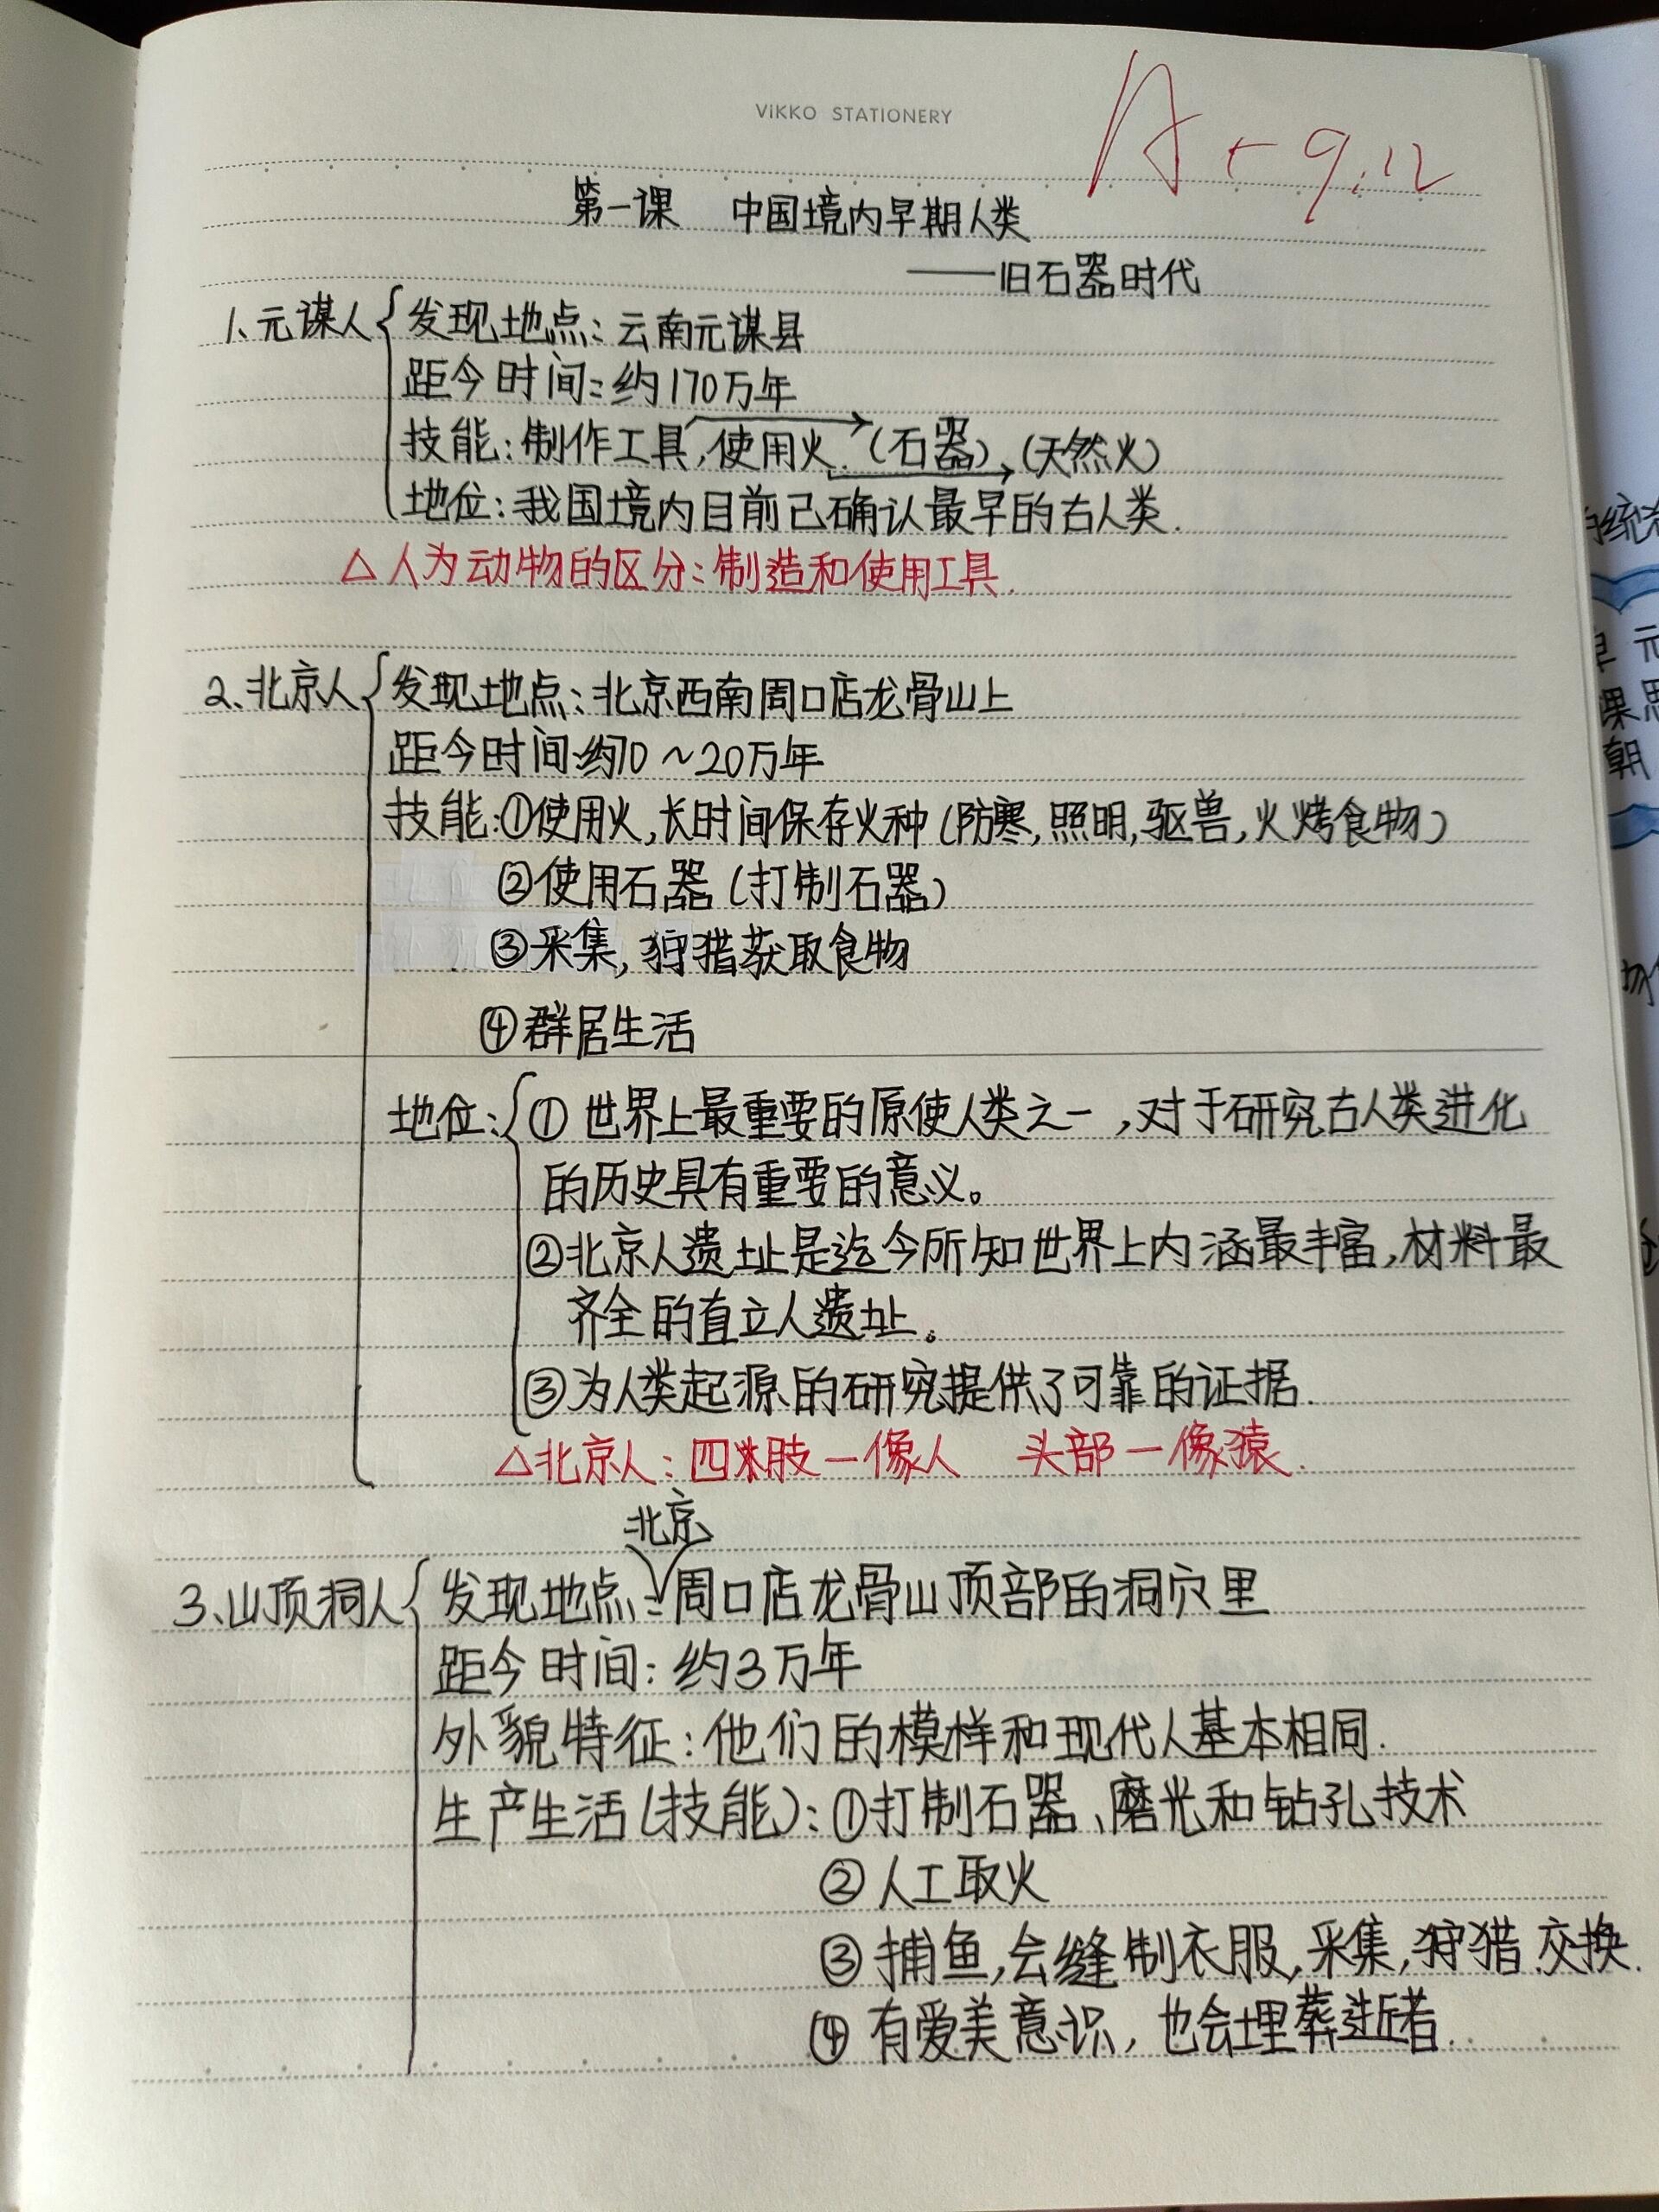 VIKKO STATIONERY
A+ 9.12
第一课 中国境内早期人类
——旧石器时代
1、元谋人 发现地点：云南元谋县
距今时间：约170万年
技能：制作工具，使用火.（石器），（天然火）
地位：我国境内目前已确认最早的古人类.
△人为动物的区分：制造和使用工具.
2、北京人 发现地点：北京西南周口店龙骨山上
距今时间：约70～20万年
技能：①使用火，长时间保存火种（防寒，照明，驱兽，火烤食物）
②使用石器（打制石器）
③采集，狩猎获取食物
④群居生活
地位：①世界上最重要的原使人类之一，对于研究古人类进化
的历史具有重要的意义。
②北京人遗址是迄今所知世界上内涵最丰富，材料最
齐全的直立人遗址。
③为人类起源的研究提供了可靠的证据.
△北京人：四肢—像人 头部—像猿.
北京
3、山顶洞人 发现地点：周口店龙骨山顶部的洞穴里
距今时间：约3万年
外貌特征：他们的模样和现代人基本相同.
生产生活（技能）：①打制石器、磨光和钻孔技术
②人工取火
③捕鱼，会缝制衣服，采集，狩猎.交换.
④有爱美意识，也会埋葬逝者.
元
课思
朝